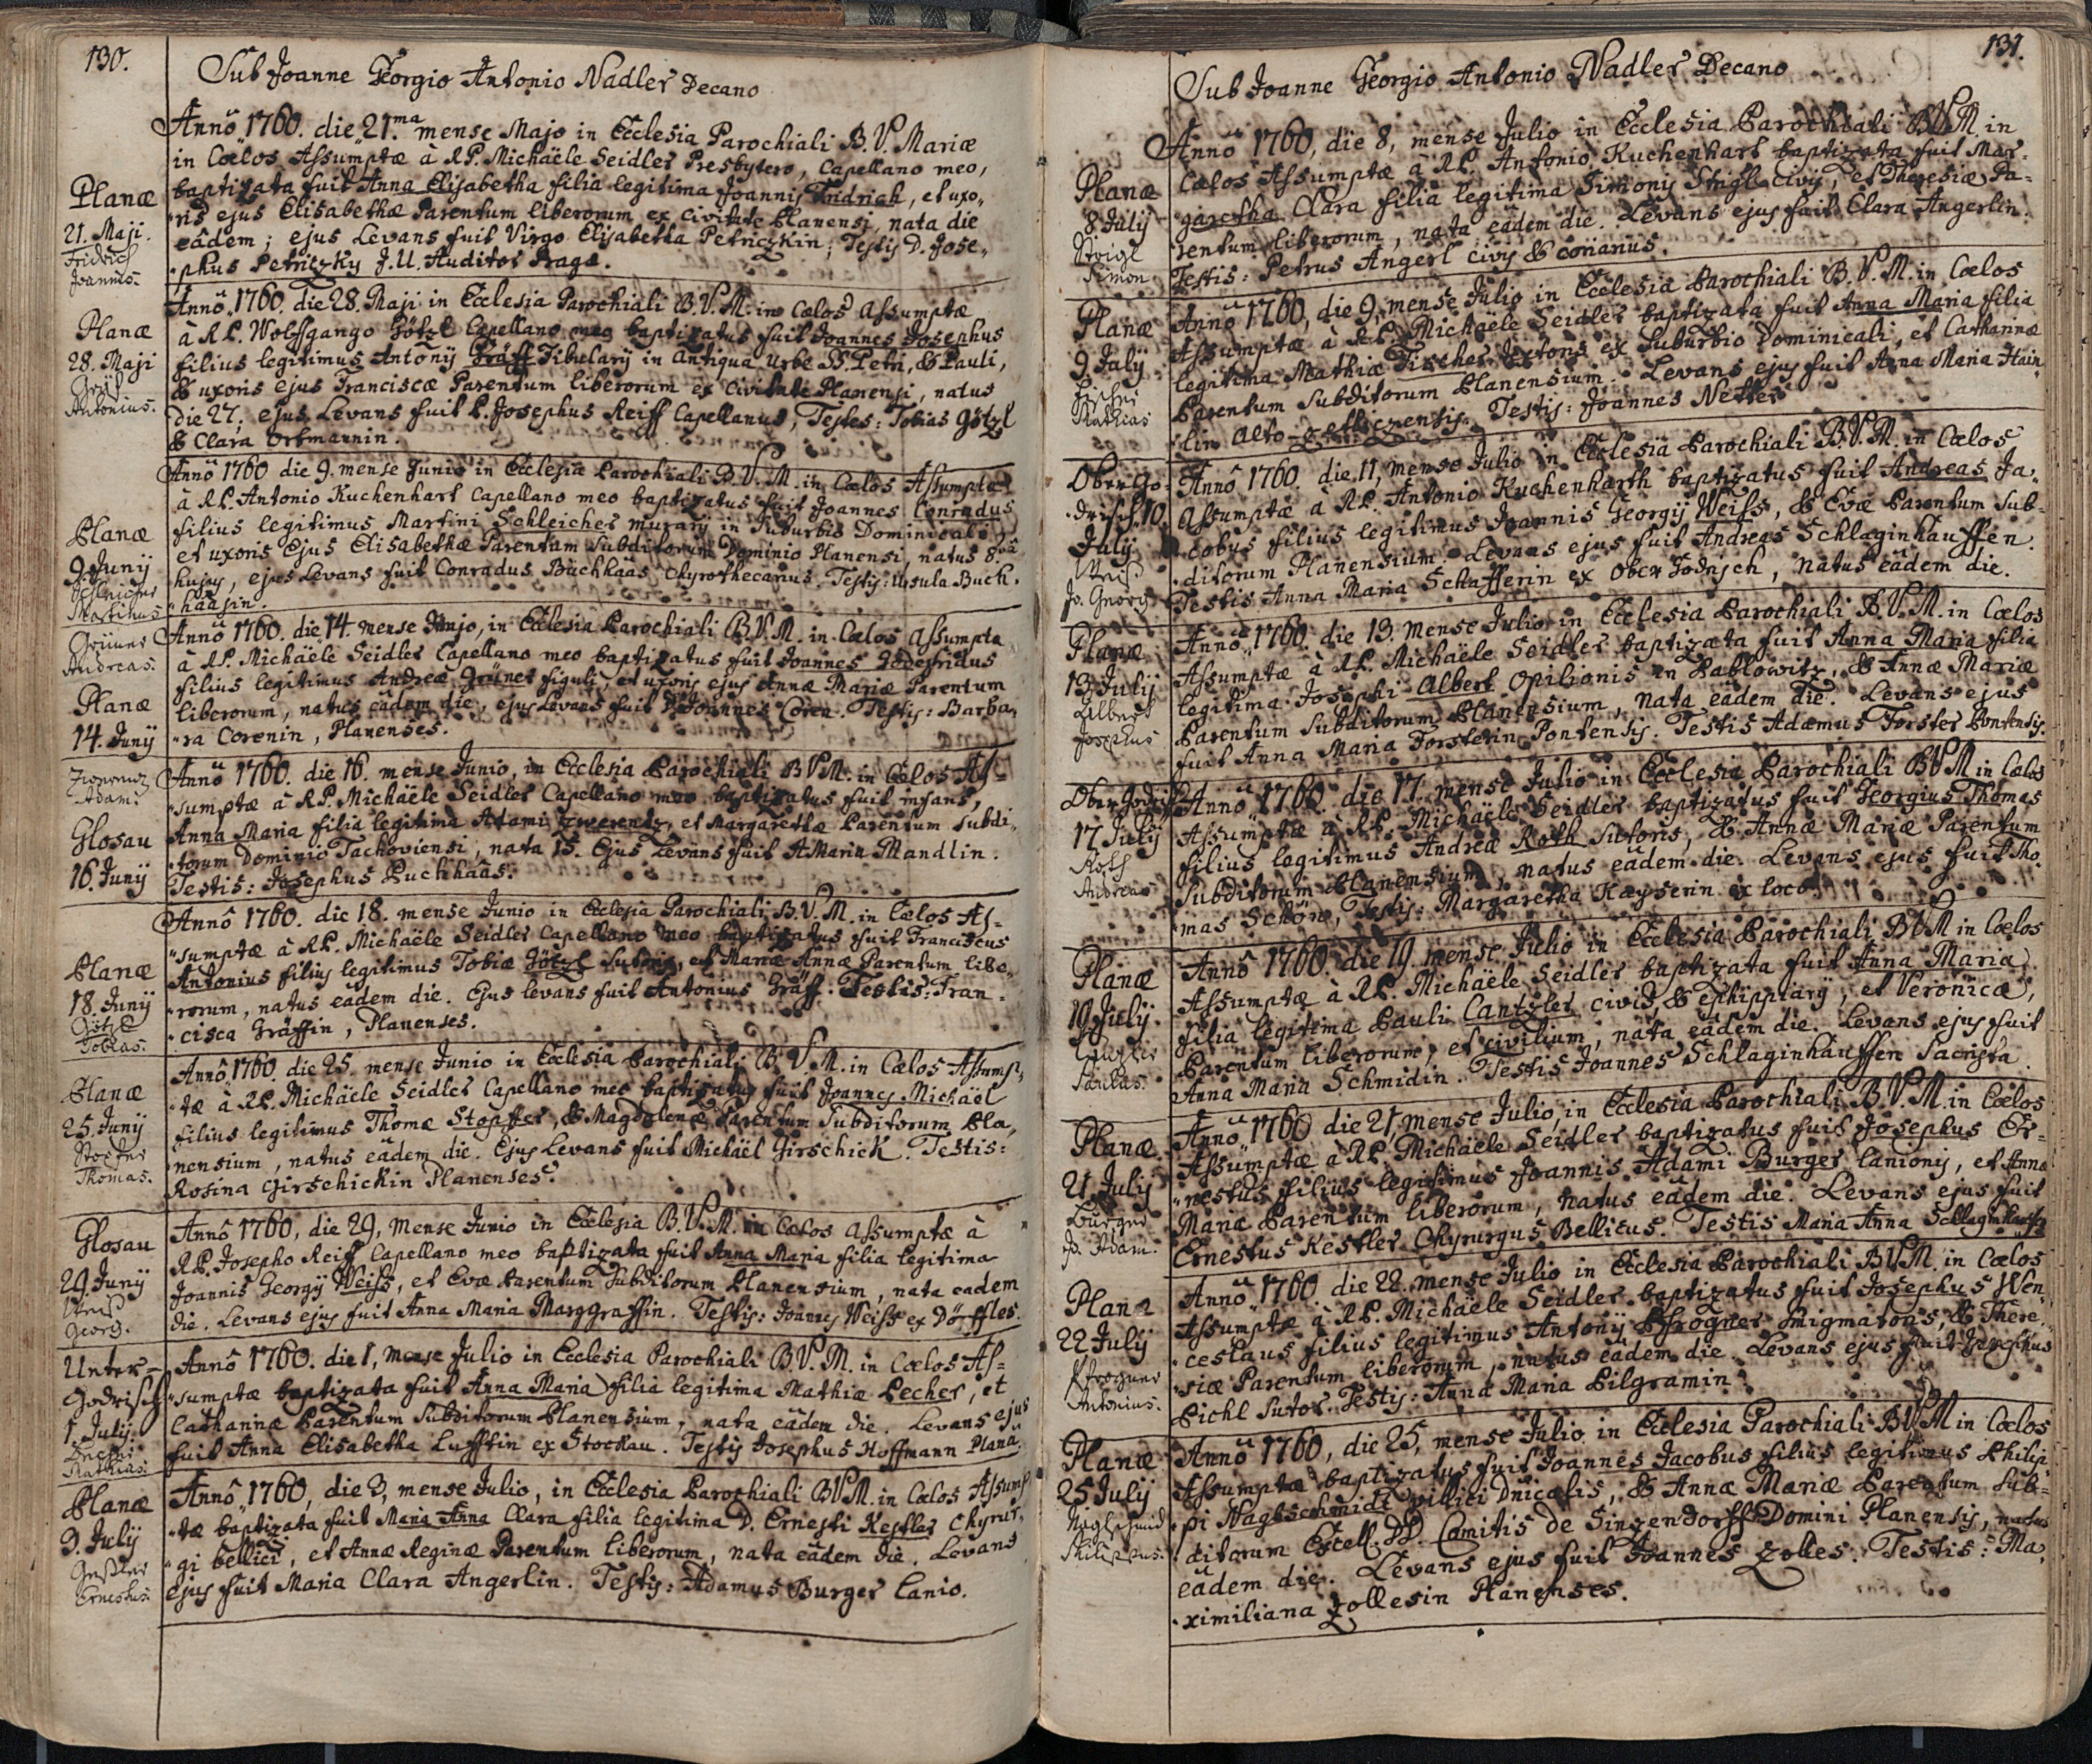 130.
Sub Joanne Georgio Antonio Nadler Decano
Annô 1760. die 21.ma mense Majo in Ecclesia Parochiali B. V. Mariæ
in Cælos Assumptæ à RP. Michaële Seidler Presbytero, Capellano meo,
Planæ
21. Maji.
Fridrich
Joannes.
baptizata fuit Anna Elisabetha filia legitima Joannis Fridrich, et uxo„
„ris ejus Elisabethæ Parentum liberorum ex civitate Planensi, nata die
eâdem; ejus Levans fuit Virgo Elisabetha Petriczkin; Testis D. Jose„
„phus Petriczky J. U. Auditor Pragæ.
Planæ
28. Maji
Gräf
Antonius.
Annô 1760. die 28. Maji in Ecclesia Parochiali B. V. M. in Cælos Assumptæ
à R.P. Wolffgango Götzl Capellano meo baptizatus fuit Joannes Josephus
filius legitimus Antonÿ Gräff Tibularÿ in antiqua Urbe SS. Petri, & Pauli,
& uxoris ejus Franciscæ Parentum liberorum ex Civitate Planensi, natus
die 27; ejus Levans fuit P. Josephus Reiff Capellanus, Testes: Tobias Götzl
& Clara Ortmannin.
Planæ
9. Junÿ
Schleicher
Martinus
Annô 1760 die 9. mense Junio in Ecclesia Parochiali B. V. M. in Cælos Assumptæ
à RP. Antonio Kuchenhart Capellano meo baptizatus fuit Joannes Conradus
filius legitimus Martini Schleicher murarÿ in Suburbio Dominicali
et uxoris Ejus Elisabethæ Parentum Subditorum Dominio Planensi, natus 8vâ
hujus, ejus Levans fuit Conradus Buchhäas Chyrothecarius. Testis: Ursula Buch„
„hääsin.
Grüner
Andreas.
Planæ
14. Junÿ
Annô 1760. die 14. mense Junio, in Ecclesia Parochiali B. V. M. in Cælos Assumpta
à RP. Michaële Seidler Capellano meo baptizatus fuit Joannes Godefridus
filius legitimus Andreæ Grüner figuli, et uxoris ejus Annæ Mariæ Parentum
liberorum, natus eâdem die, ejus Levans fuit D. Joannes Coren. Testis: Barba„
„ra Corenin, Planenses.
Zwerenz
Adam.
Glosau
16. Junÿ
Annô 1760. die 16. mense Junio, in Ecclesia Parochiali B V M. in Cælos As=
„sumptæ à RP. Michaële Seidler Capellano meo baptizatus fuit infans,
Anna Maria filia legitima Adami Zwerentz, et Margarethæ Parentum Subdi„
„torum Dominio Tachoviensi, nata 15. Ejus Levans fuit A Maria Mandlin.
Testis: Josephus Puchhäas.
Planæ
18. Junÿ
Götzl
Tobias.
Annô 1760. die 18. mense Junio in Ecclesia Parochiali B. V. M. in Cælos As=
„sumptæ à R.P. Michaële Seidler Capellano meo baptizatus fuit Franciscus
Antonius filius legitimus Tobiæ Götzl Sutoris, et Mariæ Annæ Parentum libe„
„rorum, natus eâdem die. Ejus levans fuit Antonius Gräff. Testis: Fran=
„cisca Gräffin, Planenses.
Planæ
25. Junÿ
Stopfer
Thomas.
Annô 1760. die 25. mense Junio in Ecclesia Parochiali B. V. M. in Cælos Assump„
„tæ à R.P. Michaële Seidler Capellano meo baptizatus fuit Joannes Michaël
filius legitimus Thomæ Stopffer, & Magdalenæ Parentum Subditorum Pla„
„nensium, natus eâdem die. Ejus Levans fuit Michaël Girschick. Testis:
Rosina Girschickin Planenses.
Glosau
29. Junÿ
Weiß
Georg.
Annô 1760, die 29, mense Junio in Ecclesia B. V. M. in Cælos Assumptæ à
R.P. Josepho Reiff Capellano meo baptizata fuit Anna Maria filia legitima
Joannis Georgÿ Weiss, et Evæ Parentum Subditorum Planensium, nata eadem
die. Levans ejus fuit Anna Maria Marggraffin. Testis: Joannes Weiss ex Dörffles.
Unter=
Godrisch
1. Julÿ.
Mathias.
Annô 1760. die 1, mense Julio in Ecclesia Parochiali B. V. M. in Cælos As=
„sumptæ baptizata fuit Anna Maria filia legitima Mathiæ Lecher, et
Catharinæ Parentum Subditorum Planensium, nata eâdem die. Levans ejus
fuit Anna Elisabetha Lufftin ex Stockau. Testis Josephus Hoffmann Planæ.
Planæ
3. Julÿ
Geßler
Ernestus.
Annô 1760, die 3, mense Julio, in Ecclesia Parochiali BVM. in Cælos Assump
„tæ baptizata fuit Maria Anna Clara filia legitima D. Ernesti Kestler Chyrur„
„gi bellici, et Annæ Reginæ Parentum liberorum, nata eâdem die. Levans
Ejus fuit Maria Clara Angerlin. Testis: Adamus Burger Lanio.
131.
Sub Joanne Georgio Antonio Nadler Decano
Planæ
8 Julÿ
Strigl
Simon
Annô 1760, die 8, mense Julio in Ecclesia Parochiali B.V.M. in
Cælos Assumptæ à R.P. Antonio Kuchenhart baptizata fuit Mar=
„garetha Clara filia legitima Simonis Strigl civis, et Theresiæ Pa=
„rentum liberorum, nata eâdem die. Levans ejus fuit Clara Angerlin.
Testis: Petrus Angerl civis & coriarius.
Planæ
9 Julÿ
Fischer
Mathias
Annô 1760, die 9, mense Julio in Ecclesia Parochiali B. V. M. in Cælos
Assumptæ à R.P. Michaële Seidler baptizata fuit Anna Maria filia
legitima Mathiæ Fischer textoris ex Suburbio Dominicali, et Catharinæ
Parentum Subditorum Planensium. Levans ejus fuit Anna Maria Hain„
„lin Testis: Joannes Netter
Ober Go=
drisch 10
Julÿ
Weiß
Jo. Georg
Annô 1760. die 11, mense Julio in Ecclesia Parochiali B.V.M. in Cælos
Assumptæ à R.P. Antonio Kuchenharth baptizatus fuit Andreas Ja„
„cobus filius legitimus Joannis Georgÿ Weiss, & Evæ Parentum Sub=
„ditorum Planensium. Levans ejus fuit Andreas Schlaginhauffen.
Testis Anna Maria Schafferin ex Ober Godrisch, natus eâdem die.
Planæ
13 Julÿ
Albert
Josephus
Annô 1760. die 13. mense Julio in Ecclesia Parochiali B. V. M. in Cælos
Assumptæ à R.P. Michaële Seidler baptizata fuit Anna Maria filia
legitima Josephi Albert Opilionis in Pablowitz, & Annæ Mariæ
Parentum Subditorum Planensium, nata eâdem die. Levans ejus
fuit Anna Maria Forsterin Pontensis. Testis Adamus Forster Pontensis.
Ober Godrisch
17. Julÿ
Roth
Andreas
Annô 1760. die 17. mense Julio in Ecclesia Parochiali BVM in Cælos
Assumptæ à R.P. Michaële Seidler baptizatus fuit Georgius Thomas
filius legitimus Andreæ Roth Sutoris, & Annæ Mariæ Parentum
Subditorum Planensium, natus eâdem die. Levans ejus fuit Tho„
„mas Schön, Testis: Margaretha Kayserin ex loco.
Planæ
19 Julÿ.
Paulus.
Annô 1760. die 19. mense Julio in Ecclesia Parochiali BVM in Cælos
Assumptæ à R.P. Michaële Seidler baptizata fuit Anna Maria
filia legitima Pauli Cantzler civis, & ephippiarÿ, et Veronicæ,
Parentum liberorum, et civilium, nata eâdem die. Levans ejus fuit
Anna Maria Schmidin. Testis Joannes Schlaginhäuffen Sacrista.
Planæ.
21 Julÿ
Bürger
J. Adam.
Annô 1760 die 21, mense Julio, in Ecclesia Parochiali B. V. M. in Cælos
Assumptæ à R.P. Michaële Seidler baptizatus fuit Josephus Er=
„nestus filius legitimus Joannis Adami Burger lanionis, et Annæ
Mariæ Parentum liberorum, natus eâdem die. Levans ejus fuit
Ernestus Kestler Chyrurgus Bellicus. Testis Maria Anna Schlaginhauffin
Planæ
22 Julÿ
Pfrogner
Antonius.
Annô 1760. die 22. mense Julio in Ecclesia Parochiali BVM. in Cælos
Assumptæ à R.P. Michaële Seidler baptizatus fuit Josephus Wen„
„ceslaus filius legitimus Antonÿ Pfrogner Smigmatoris, & There„
„siæ Parentum liberorum, natus eâdem die. Levans ejus fuit Josephus
Pichl Sutor. Testis: Anna Maria Pilgramin.
Planæ
25 Julÿ
Naglschmid
Philippus.
Annô 1760, die 25, mense Julio in Ecclesia Parochiali BVM in Cælos
Assumptæ baptizatus fuit Joannes Jacobus filius legitimus Philip„
„pi Nagbschmidt villici Dnicalis, & Annæ Mariæ Parentum Sub=
„ditorum Excell. DD. Comitis de Sinzendorff Domini Planensis, natus
eâdem die. Levans ejus fuit Joannes Zolles. Testis: Ma„
„ximiliana Zollesin Planenses.